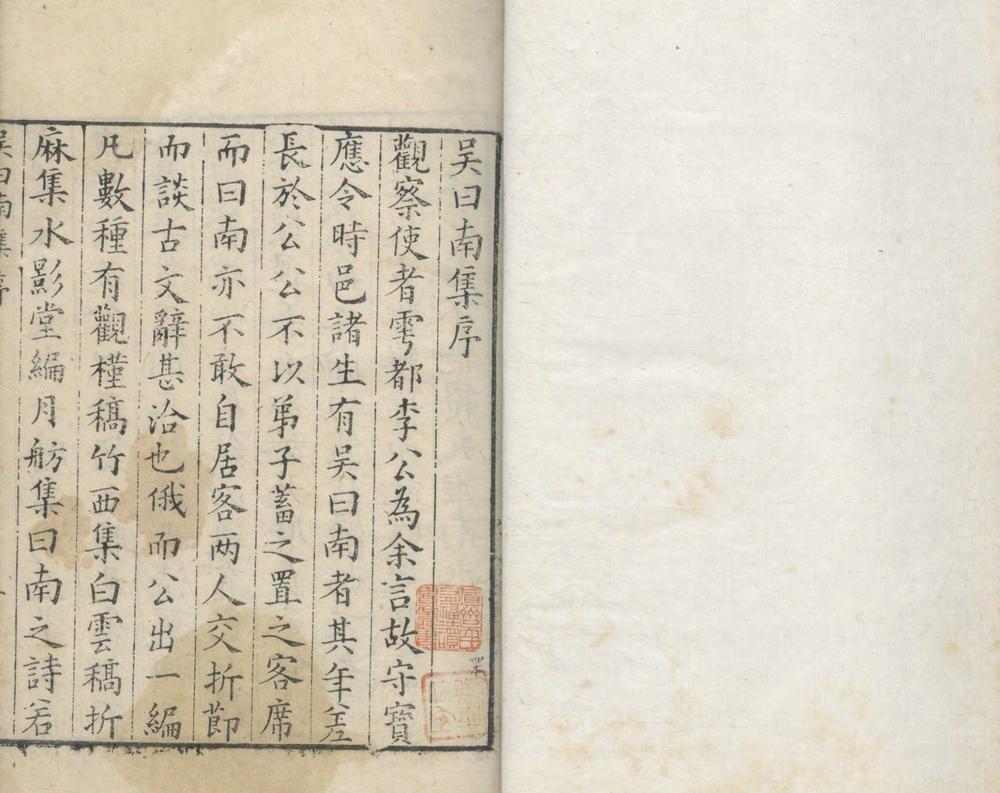 吳曰南集序
觀察使者雩都李公為余言故守寶
應令時邑諸生有吳曰南者其年差
長於公公不以弟子蓄之置之客席
而曰南亦不敢自居客两人交折節
而談古文辭甚洽也俄而公出一編
凡數種有觀槿稿竹西集白雲稿折
麻集水影堂編月舫集曰南之詩若
吳曰南集序